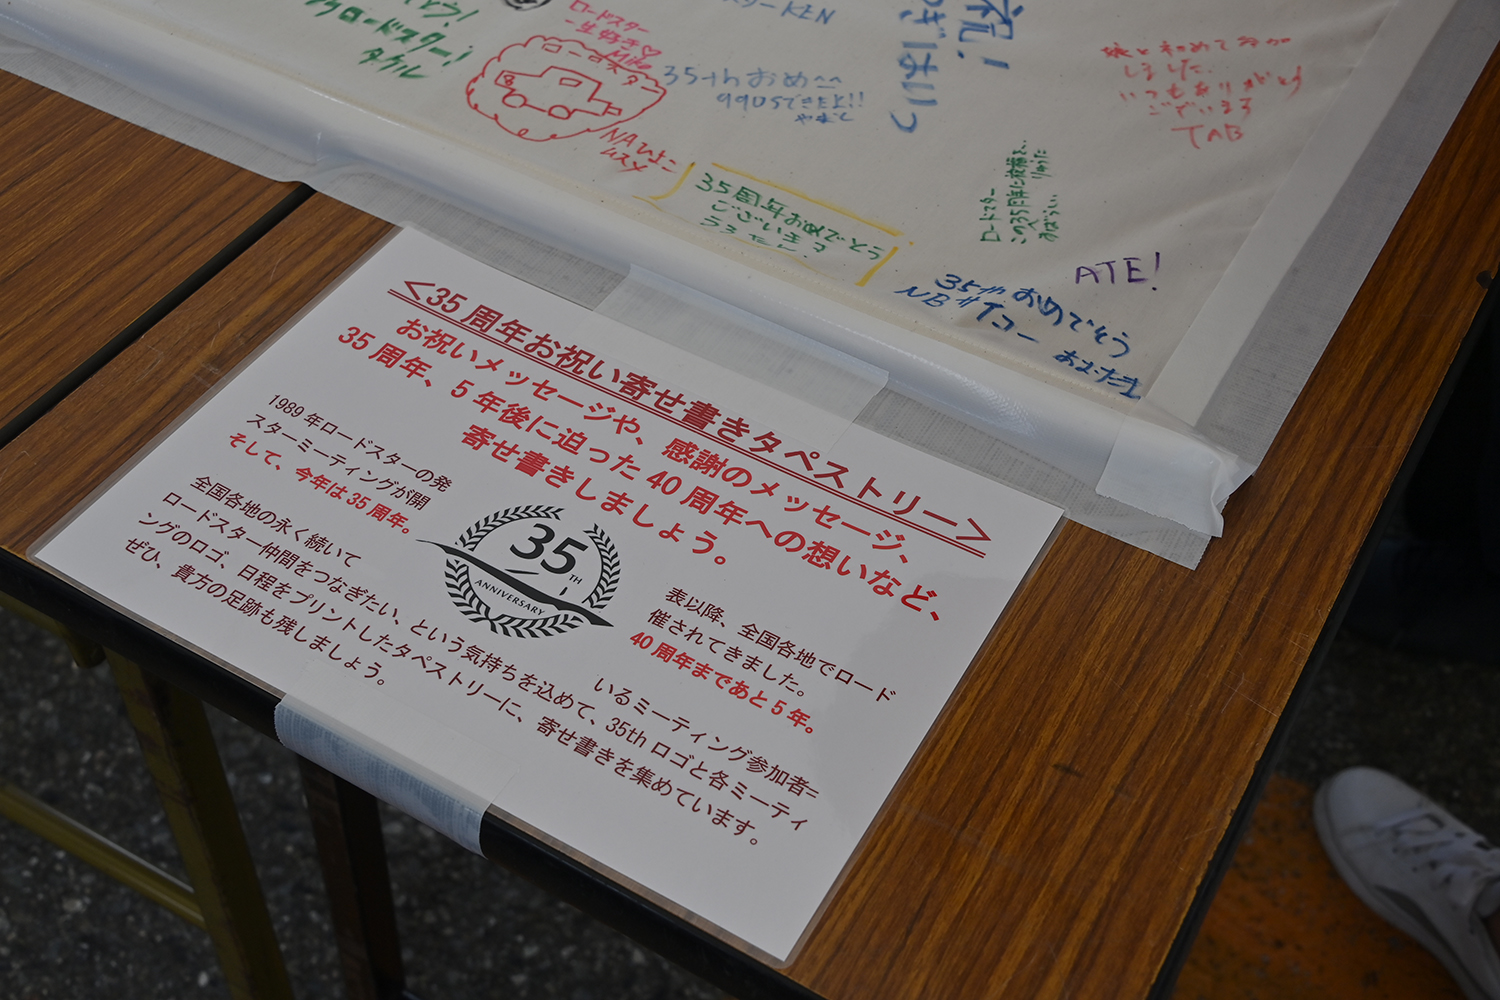 ロードスター
一生好き♡
ロードスター
タクル
NAひよこ
ムスメ
35thおめ^^
990Sできたよ!!
祝!
娘と初めて参加
しました
いつもありがとう
ございます
TAB
35周年おめでとう
ございます
ロードスター
この35周年に
ATE!
35thおめでとう
NBサイコー
<35周年お祝い寄せ書きタペストリー>
お祝いメッセージや、感謝のメッセージ、
35周年、5年後に迫った40周年への想いなど、
寄せ書きしましょう。
1989年ロードスターの発表以降、全国各地でロード
スターミーティングが開催されてきました。
そして、今年は35周年。 40周年まであと5年。
35TH
ANNIVERSARY
全国各地の永く続いているミーティング参加者=
ロードスター仲間をつなぎたい、という気持ちを込めて、35thロゴと各ミーティ
ングのロゴ、日程をプリントしたタペストリーに、寄せ書きを集めています。
ぜひ、貴方の足跡も残しましょう。